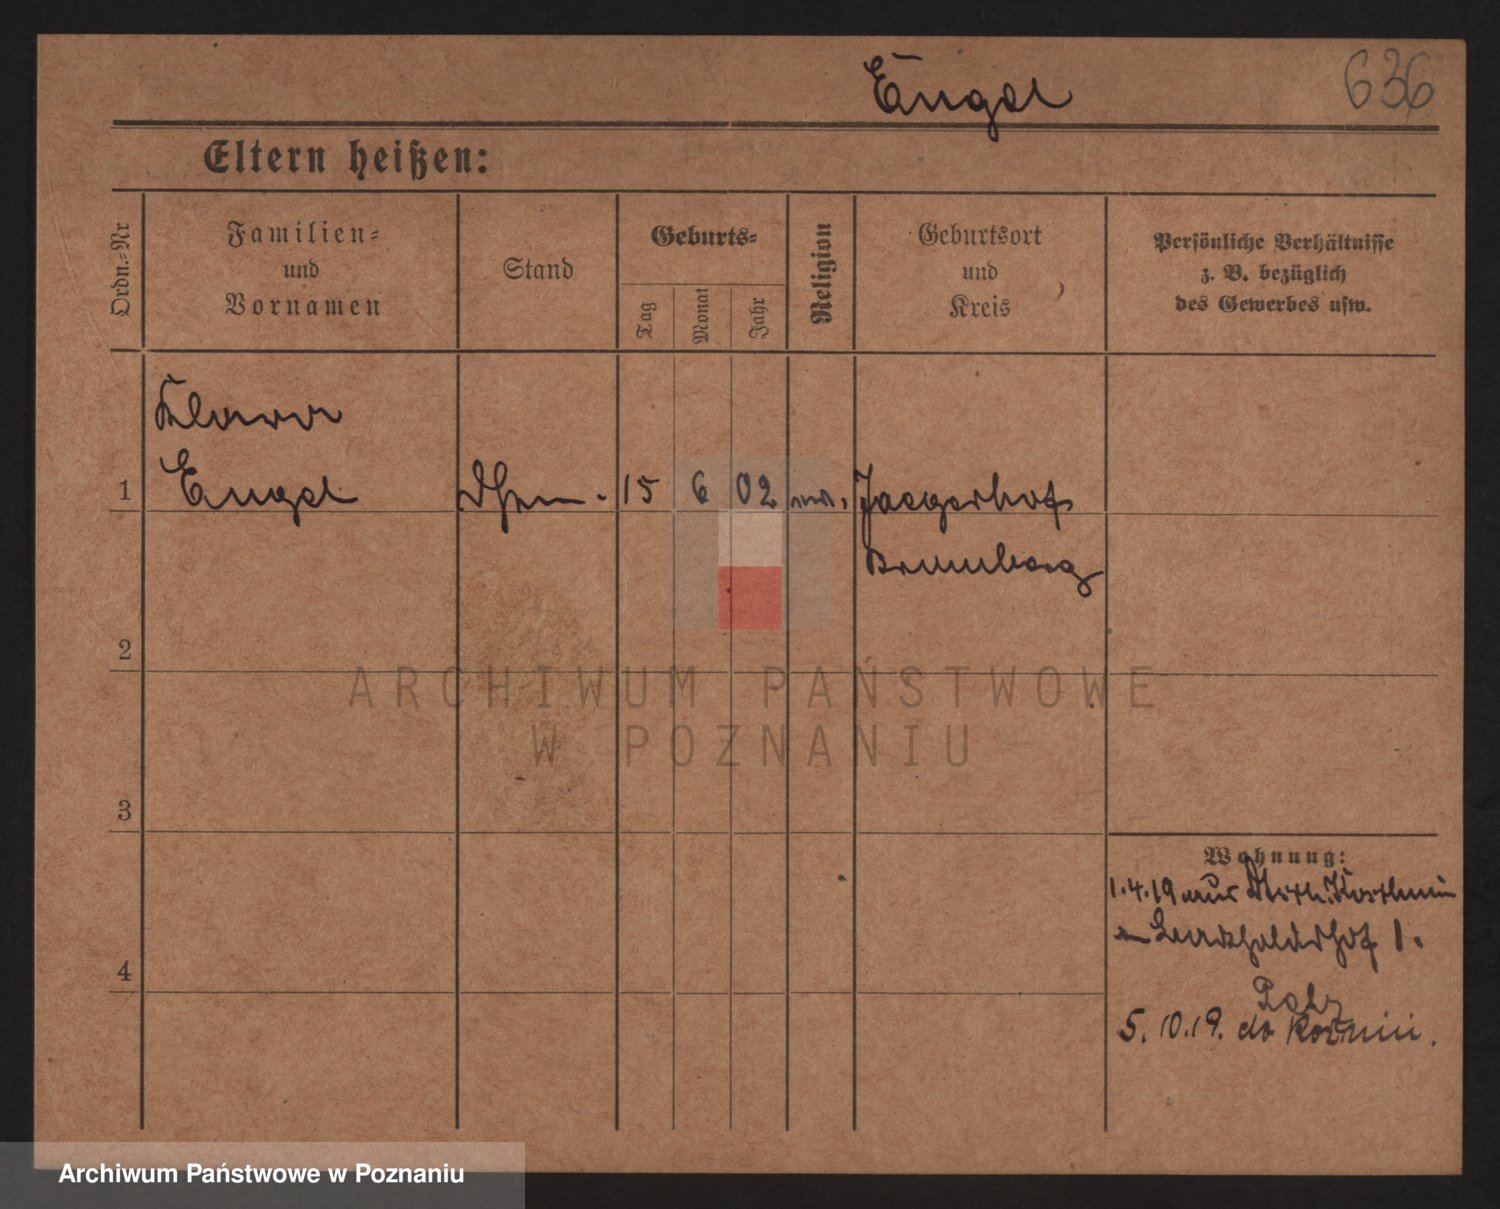 Engel
636
Eltern heißen:
Ordn.=Nr
Familien=
und
Vornamen
Stand
Geburts=
Tag
Monat
Jahr
Religion
Geburtsort
und
Kreis
Persönliche Verhältnisse
z. B. bezüglich
des Gewerbes usw.
Klara
1 Engel
15 6 02
Jaegerhof
Bromberg
2
3
4
Wohnung:
1.4.19 aus
1.
5.10.19. do Koźmin.
ARCHIWUM PAŃSTWOWE
W POZNANIU
Archiwum Państwowe w Poznaniu